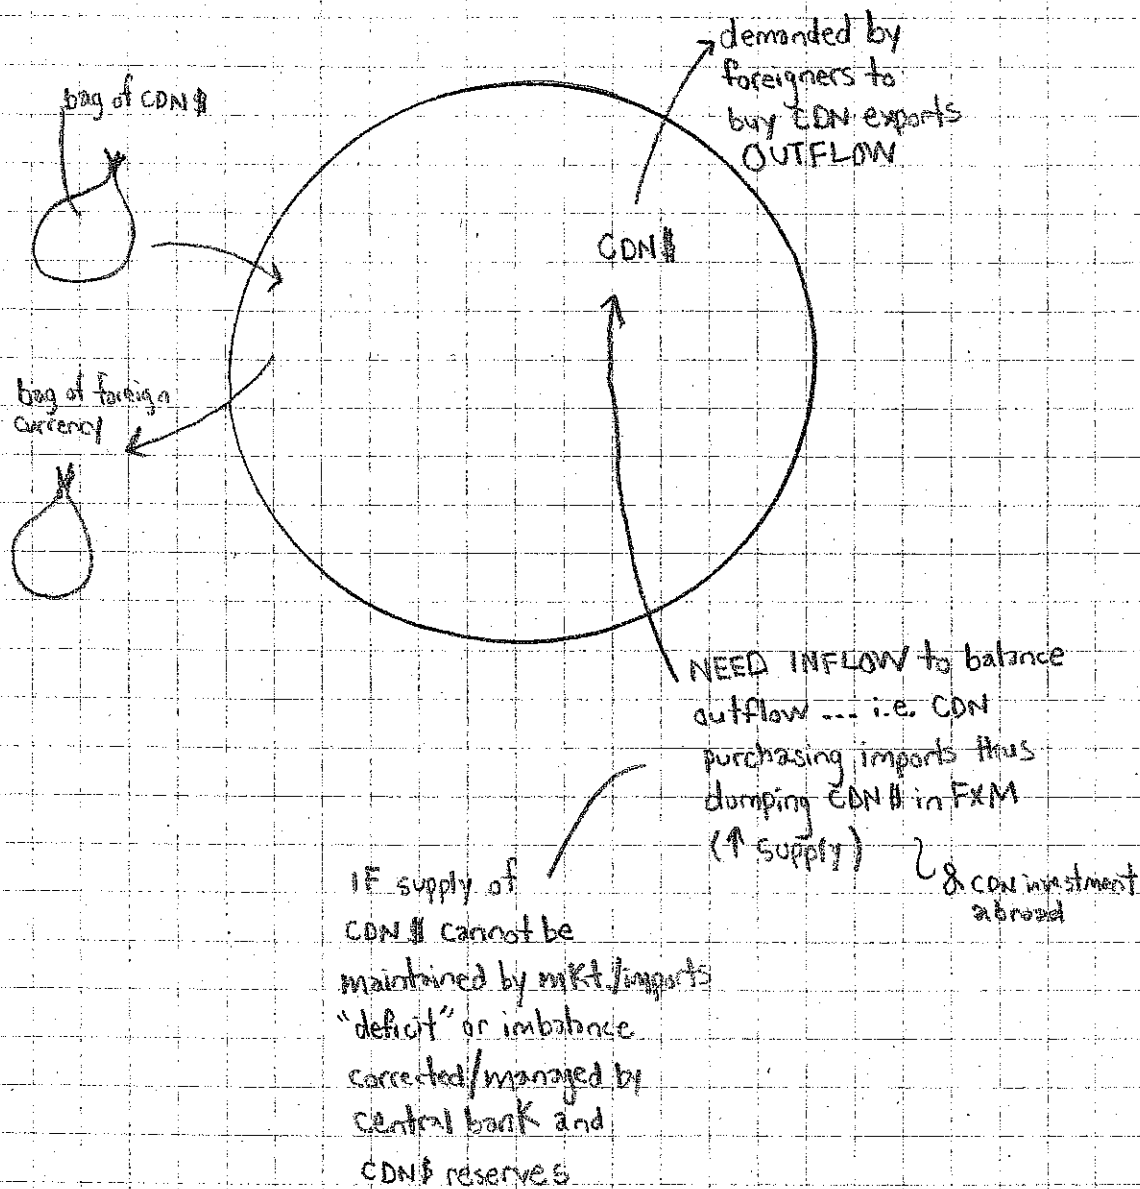 bag of CDN$
demanded by
foreigners to
buy CDN exports
OUTFLOW
CDN$
bag of foreign
currency
NEED INFLOW to balance
outflow ... i.e. CDN
purchasing imports thus
dumping CDN$ in FXM
(↑ supply)
& CDN investment
abroad
IF supply of
CDN$ cannot be
maintained by mkt./imports
"deficit" or imbalance
corrected/managed by
central bank and
CDN$ reserves